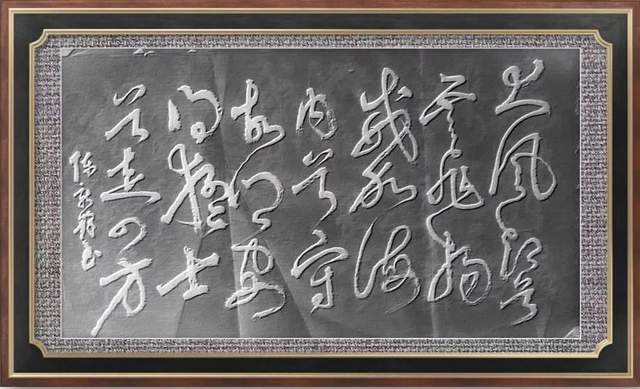 大风起兮
云飞扬
威加海
内兮
故乡安
得猛士
兮四方